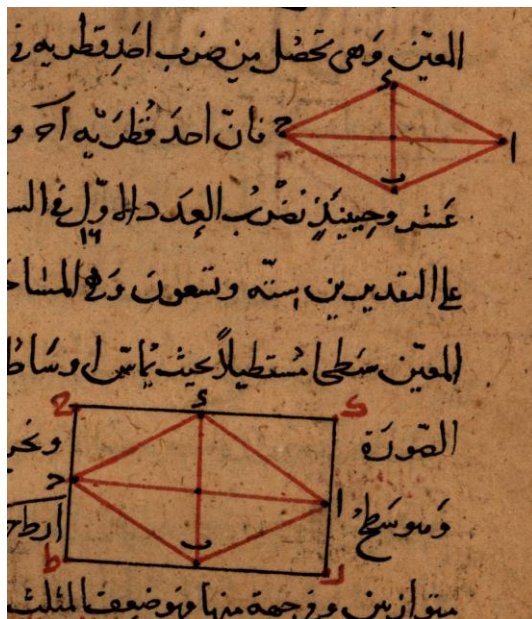 المعيّن وهى تحصل من ضرب احد قطريه فى
فانّ احد قُطرَيْه اح و
عشر وحينئذٍ نضْربُ العِدد الاوّل فى الس
١٦
على التقديرين ستّه وتسعون وهى المساحه
المعيّن سَطحا مُستطيلاً بحيث يُماسّ اوساط
الصّورَة ونخر
وَهو سَطحُ
متوازيين وفى جهة منها وهو ضعف المثلث